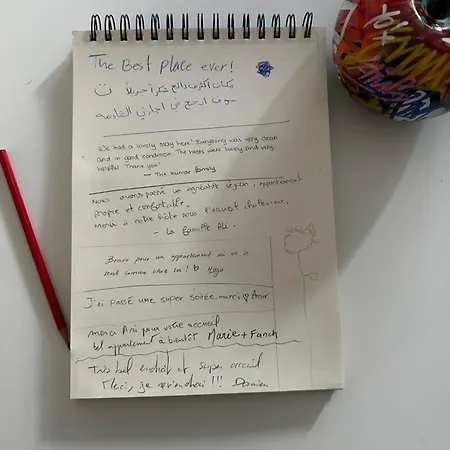 The Best place ever!
مكان أكثر من رائع شكرا جزيلاً
سوف ارجع في اجازتي القادمه
We had a lovely stay here! Everything was very clean
and in good condition. The hosts were lovely and very
helpful. Thank you!
- The Kumar family
Nous avons passé un agréable séjour, appartement
propre et confortable.
merci à notre hôte pour l'accueil chaleureux.
- La famille Ali -
Bravo pour un appartement où on se
sent comme chez soi! Hugo
J'ai passé une super soirée merci Amir
merci Ari pour votre accueil
bel appartement à bientôt Marie + Fanch
Très bel endroit et super accueil
Merci, je reviendrai !!! Damien